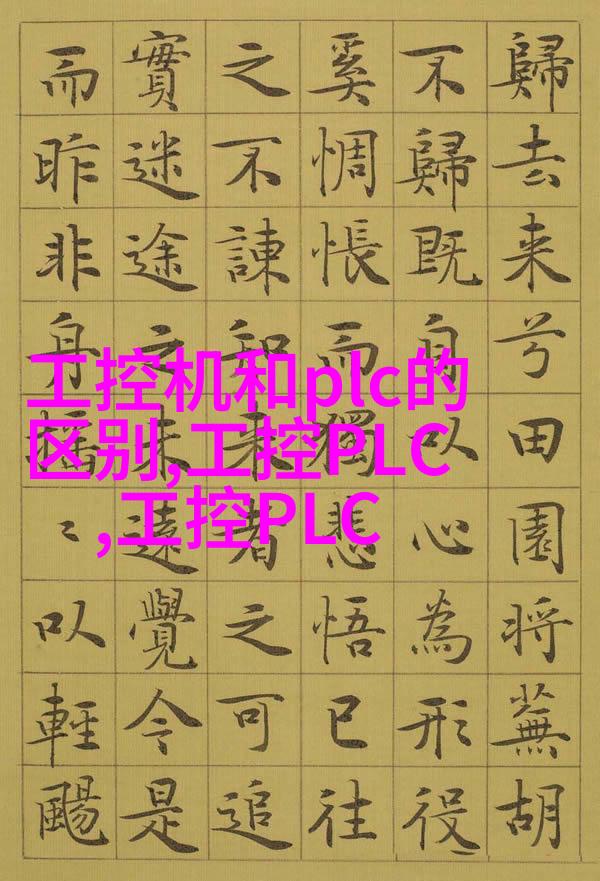 歸去来兮田園将蕪胡
不歸既自以心為形役
奚惆悵而獨悲悟已往
之不諫知来者之可追
實迷途之未遠覺今是
而昨非舟揺〻以輕颺
工控机和plc的
区别,工控PLC
,工控PLC